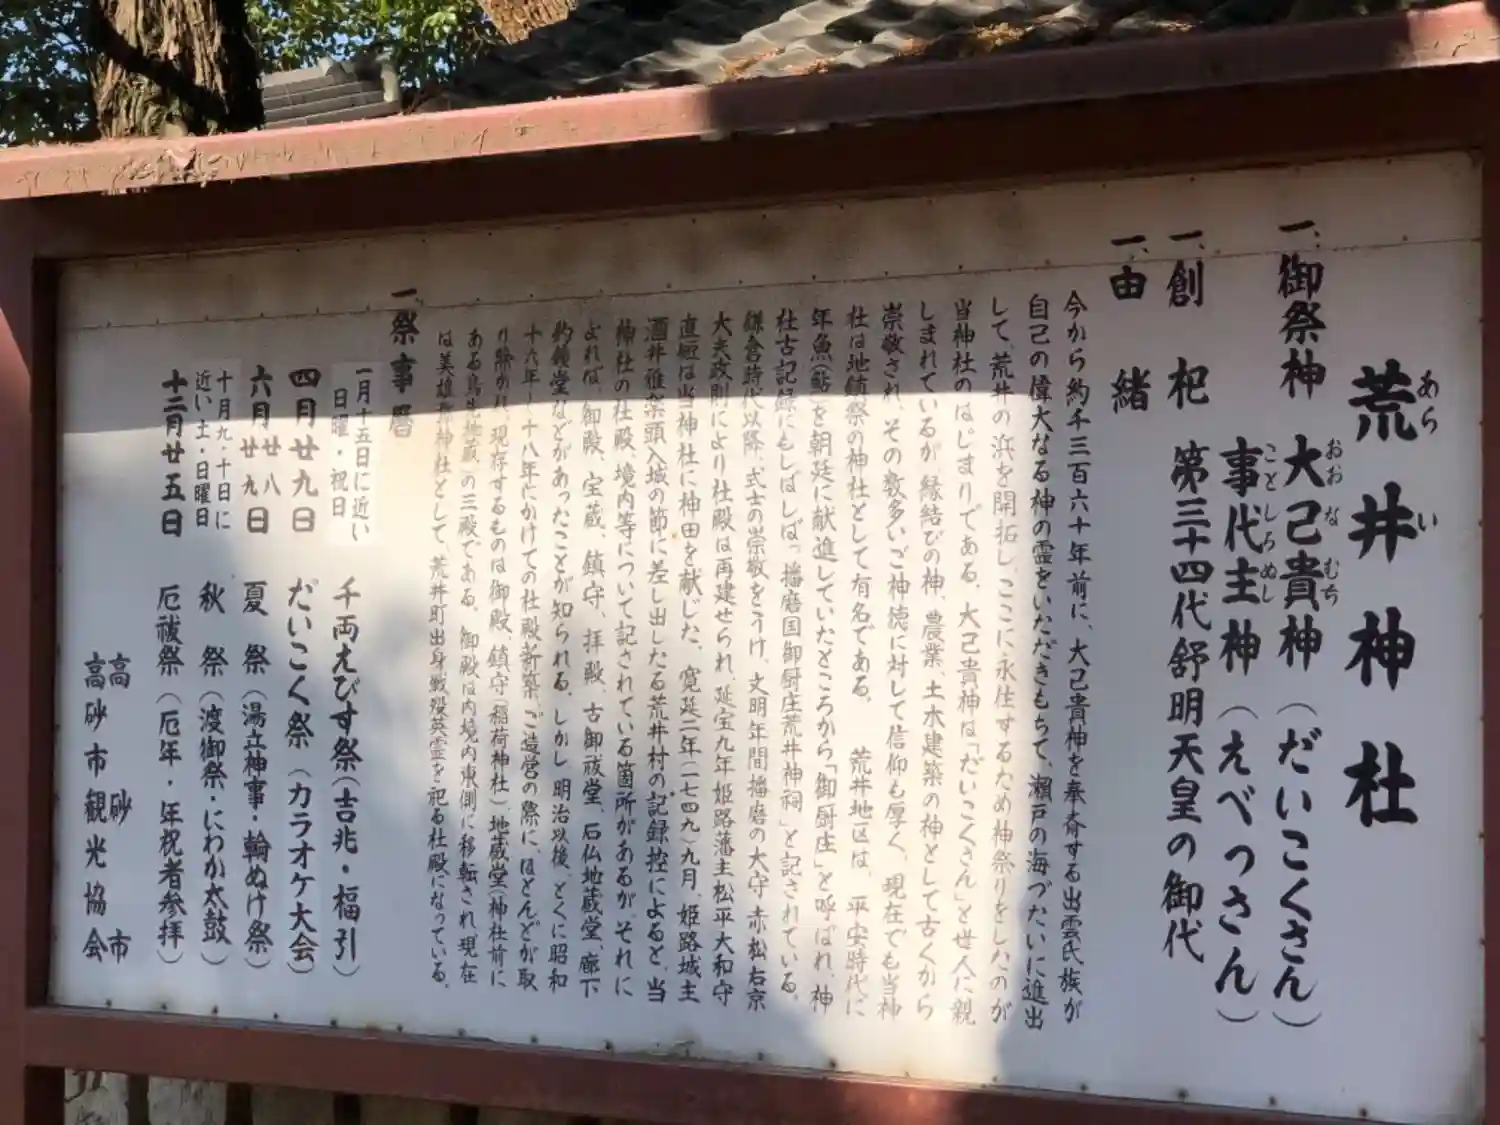 荒井神社
あらい
一、御祭神 大己貴神（だいこくさん）
おおなむち
事代主神（えべっさん）
ことしろぬし
一、創祀 第三十四代舒明天皇の御代
一、由緒
今から約千三百六十年前に、大己貴神を奉斎する出雲氏族が
自己の偉大なる神の霊をいただきもちて、瀬戸の海づたいに進出
して、荒井の浜を開拓し、ここに永住するため神祭りをしたのが
当神社のはじまりである。大己貴神は「だいこくさん」と世人に親
しまれているが、縁結びの神、農業、土木建築の神として古くから
崇敬され、その数多いご神徳に対して信仰も厚く、現在でも当神
社は地鎮祭の神社として有名である。 荒井地区は、平安時代に
年魚（鮎）を朝廷に献進していたところから「御厨庄」と呼ばれ、神
社古記録にもしばしば「播磨国御厨庄荒井神祠」と記されている。
鎌倉時代以降、武士の崇敬をうけ、文明年間播磨の大守赤松右京
大夫政則により社殿は再建せられ、延宝九年姫路藩主松平大和守
直矩は当神社に神田を献じた。寛延二年（一七四九）九月、姫路城主
酒井雅楽頭入城の節に差し出したる荒井村の記録控によると、当
神社の社殿、境内等について記されている箇所があるが、それに
よれば、御殿、宝蔵、鎮守、拝殿、古御祓堂、石仏地蔵堂、廊下
釣鐘堂などがあったことが知られる。しかし、明治以後、とくに昭和
十六年～十八年にかけての社殿新築、ご造営の際に、ほとんどが取
り除かれ、現存するものは御殿、鎮守（稲荷神社）、地蔵堂（神社前に
ある鳥先地蔵）の三殿である。御殿は内境内東側に移転され現在
は美雄振神社として、荒井町出身戦歿英霊を祀る社殿になっている。
一、祭事暦
一月十五日に近い日曜・祝日 千両えびす祭（吉兆・福引）
四月廿九日 だいこく祭（カラオケ大会）
六月廿八廿九日 夏祭（湯立神事・輪ぬけ祭）
十月九・十日に近い土・日曜日 秋祭（渡御祭・にわか太鼓）
十二月廿五日 厄祓祭（厄年・年祝者参拝）
高砂市
高砂市観光協会